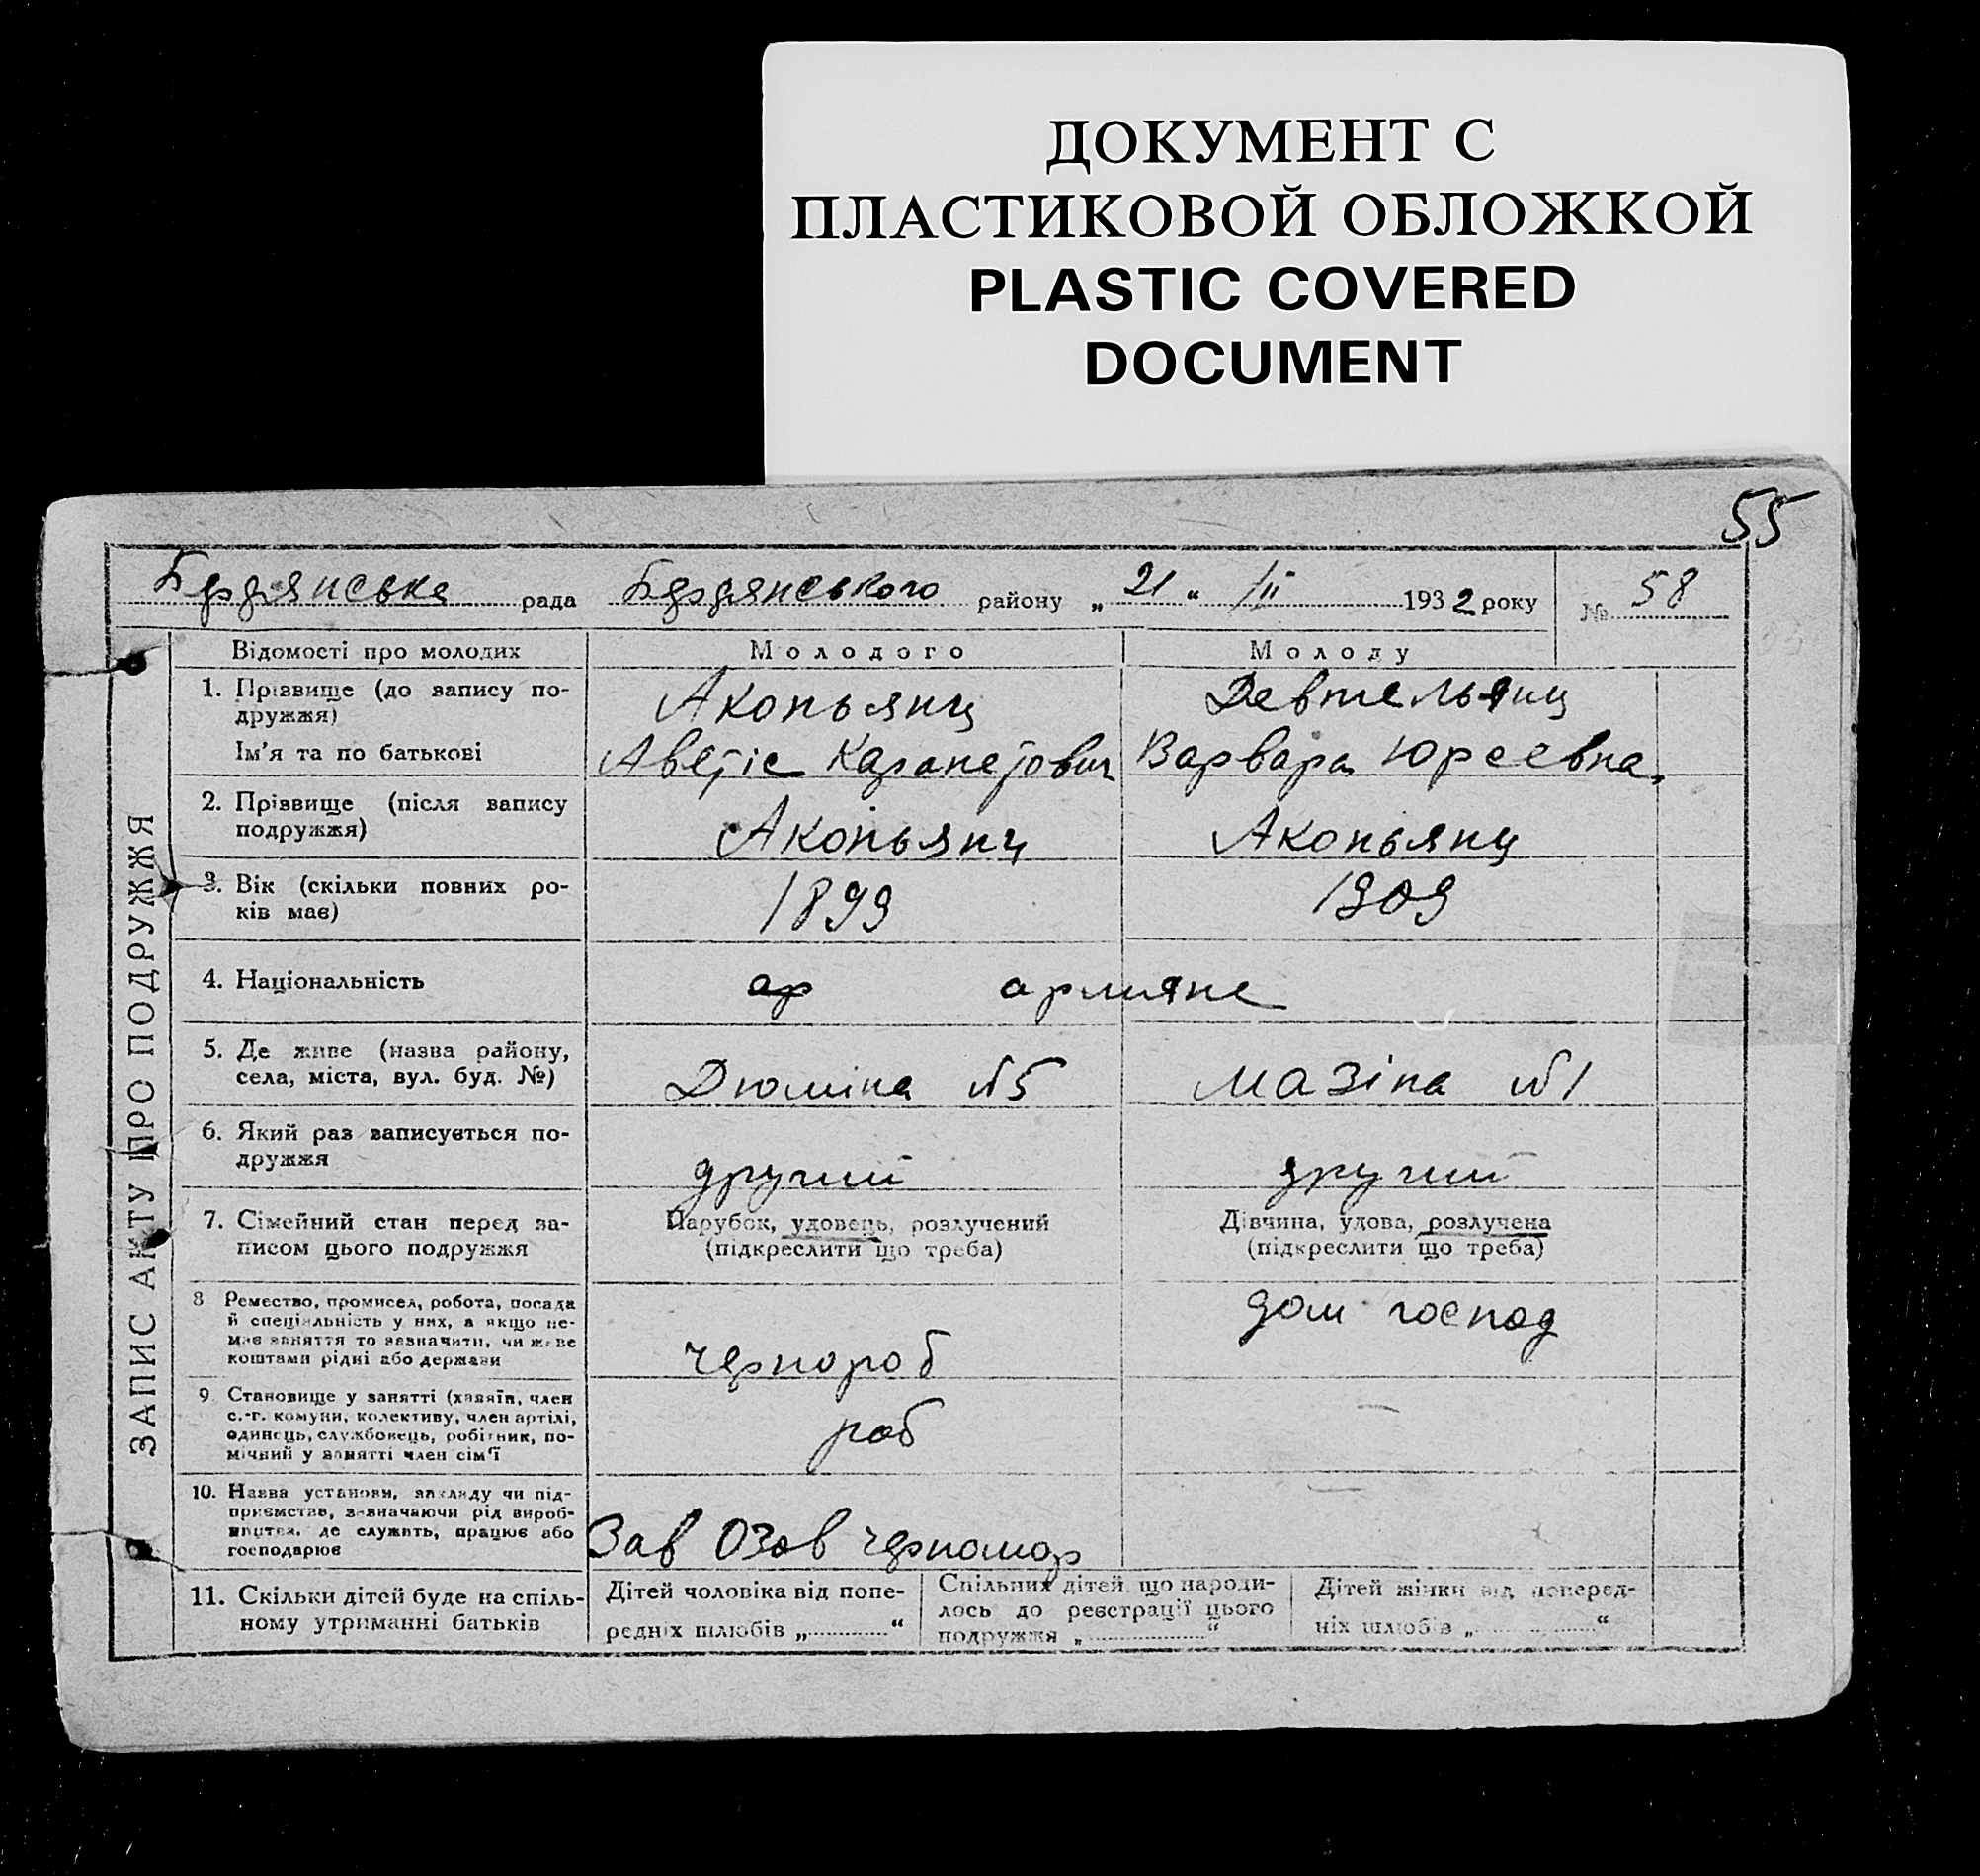 ДОКУМЕНТ С
ПЛАСТИКОВОЙ ОБЛОЖКОЙ
PLASTIC COVERED
DOCUMENT
55
Бердянська рада Бердянського району „21“ /II 1932 року № 58
ЗАПИС АКТУ ПРО ПОДРУЖЖЯ
Відомості про молодих Молодого Молоду
1. Прізвище (до запису по-
дружжя) Акопьянц Девтельянц
Ім’я та по батькові Аветіс Карапетович Варвара Юреевна
2. Прізвище (після запису
подружжя) Акопьянц Акопьянц
3. Вік (скільки повних ро-
ків має) 1899 1909
4. Національність ар армяне
5. Де живе (назва району,
села, міста, вул. буд. №) Дюміна №5 Мазіна №1
6. Який раз записується по-
дружжя другий другий
7. Сімейний стан перед за- Парубок, удовець, розлучений Дівчина, удова, розлучена
писом цього подружжя (підкреслити що треба) (підкреслити що треба)
8 Ремество, промисел, робота, посада
й спеціяльність у них, а якщо не-
має заняття то зазначити, чи живе
коштами рідні або держави чернороб дом господ
9. Становище у занятті (хазяїн, член
с.-г. комуни, колективу, член артілі,
одинець, службовець, робітник, по-
мічний у занятті член сім’ї роб —
10. Назва установи, закладу чи під-
приємства, зазначаючи рід вироб-
ництва, де служить, працює або
господарює Зав Озов черномор —
11. Скільки дітей буде на спіль- Дітей чоловіка від попе- Спільних дітей, що народи- Дітей жінки від поперед-
ному утриманні батьків редніх шлюбів „ “ лось до реєстрації цього ніх шлюбів „ “
подружжя „ “